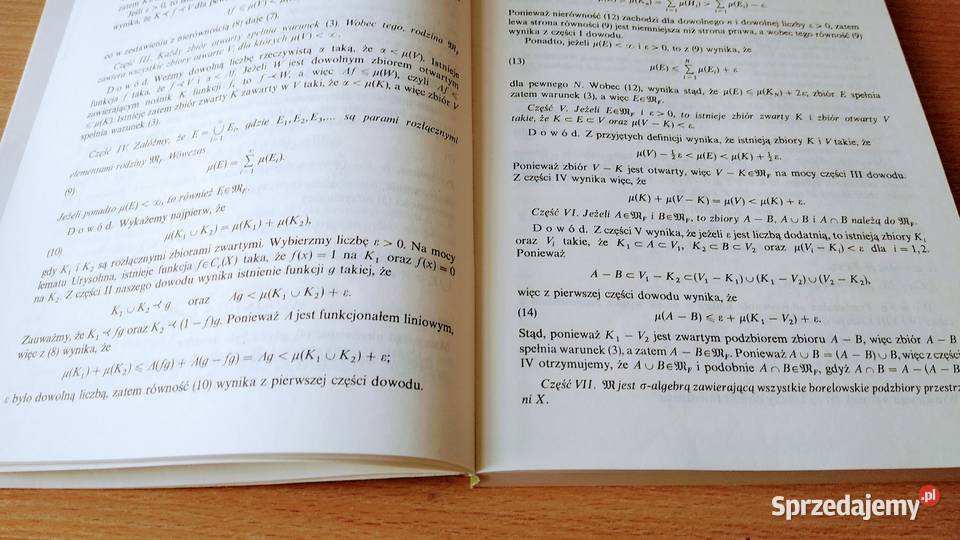 Jeśli ε > 0, to
wynika, że K ≺ f ≺ V dla pewnej
Af ≤ μ(V)
co w zestawieniu z nierównością (8) daje (7).
Część III. Każdy zbiór otwarty spełnia warunek (3). Wobec tego, rodzina 𝔐_F
zawiera wszystkie zbiory otwarte V, dla których μ(V) < ∞.
Dowód. Weźmy dowolną liczbę rzeczywistą α taką, że α < μ(V). Istnieje
funkcja f taka, że f ≺ V i α < Λf. Jeżeli W jest dowolnym zbiorem otwartym
zawierającym nośnik K funkcji f, to f ≺ W, a więc Λf ≤ μ(W), czyli Λf ≤
≤ μ(K). Istnieje zatem zbiór zwarty K zawarty w V taki, że α < μ(K), a więc zbiór V
spełnia warunek (3).
Część IV. Załóżmy, że E = ⋃ E_i, gdzie E₁, E₂, E₃,... są parami rozłącznymi
elementami rodziny 𝔐_F. Wówczas
(9) μ(E) = ∑_{i=1}^{∞} μ(E_i).
Jeżeli ponadto μ(E) < ∞, to również E∈𝔐_F.
Dowód. Wykażemy najpierw, że
(10) μ(K₁ ∪ K₂) = μ(K₁) + μ(K₂),
gdy K₁ i K₂ są rozłącznymi zbiorami zwartymi. Wybierzmy liczbę ε > 0. Na mocy
lematu Urysohna, istnieje funkcja f∈C_c(X) taka, że f(x) = 1 na K₁ oraz f(x) = 0
na K₂. Z części II naszego dowodu wynika istnienie funkcji g takiej, że
K₁ ∪ K₂ ≺ g oraz Λg < μ(K₁ ∪ K₂) + ε.
Zauważmy, że K₁ ≺ fg oraz K₂ ≺ (1 − f)g. Ponieważ Λ jest funkcjonałem liniowym,
więc z (8) wynika, że
μ(K₁) + μ(K₂) ≤ Λ(fg) + Λ(g − fg) = Λg < μ(K₁ ∪ K₂) + ε;
ε było dowolną liczbą, zatem równość (10) wynika z pierwszej części dowodu.
Ponieważ nierówność (12) zachodzi dla dowolnego n i dowolnej liczby ε > 0, zatem
lewa strona równości (9) jest niemniejsza niż strona prawa, a wobec tego równość (9)
wynika z części I dowodu.
Ponadto, jeżeli μ(E) < ∞ i ε > 0, to z (9) wynika, że
(13) μ(E) ≤ ∑_{i=1}^{N} μ(E_i) + ε
dla pewnego N. Wobec (12), wynika stąd, że μ(E) ≤ μ(K_N) + 2ε; zbiór E spełnia
zatem warunek (3), a więc E∈𝔐_F.
Część V. Jeżeli E∈𝔐_F i ε > 0, to istnieje zbiór zwarty K i zbiór otwarty V
takie, że K ⊂ E ⊂ V oraz μ(V − K) < ε.
Dowód. Z przyjętych definicji wynika, że istnieją zbiory K i V takie, że
μ(V) − ½ε < μ(E) < μ(K) + ½ε.
Ponieważ zbiór V − K jest otwarty, więc V − K∈𝔐_F na mocy części III dowodu.
Z części IV wynika więc, że
μ(K) + μ(V − K) = μ(V) < μ(K) + ε.
Część VI. Jeżeli A∈𝔐_F i B∈𝔐_F, to zbiory A − B, A ∪ B i A ∩ B należą do 𝔐_F.
Dowód. Z części V wynika, że jeżeli ε jest liczbą dodatnią, to istnieją zbiory K_i
oraz V_i takie, że K₁ ⊂ A ⊂ V₁, K₂ ⊂ B ⊂ V₂ oraz μ(V_i − K_i) < ε dla i = 1,2.
Ponieważ
A − B ⊂ V₁ − K₂ ⊂ (V₁ − K₁) ∪ (K₁ − V₂) ∪ (V₂ − K₂),
więc z pierwszej części dowodu wynika, że
(14) μ(A − B) ≤ ε + μ(K₁ − V₂) + ε.
Stąd, ponieważ K₁ − V₂ jest zwartym podzbiorem zbioru A − B, więc zbiór A − B
spełnia warunek (3), a zatem A − B∈𝔐_F. Ponieważ A ∪ B = (A − B) ∪ B, więc z części
IV otrzymujemy, że A ∪ B∈𝔐_F i podobnie A ∩ B∈𝔐_F, gdyż A ∩ B = A − (A − B
Część VII. 𝔐 jest σ-algebrą zawierającą wszystkie borelowskie podzbiory przestrz
ni X.
Sprzedajemy.pl